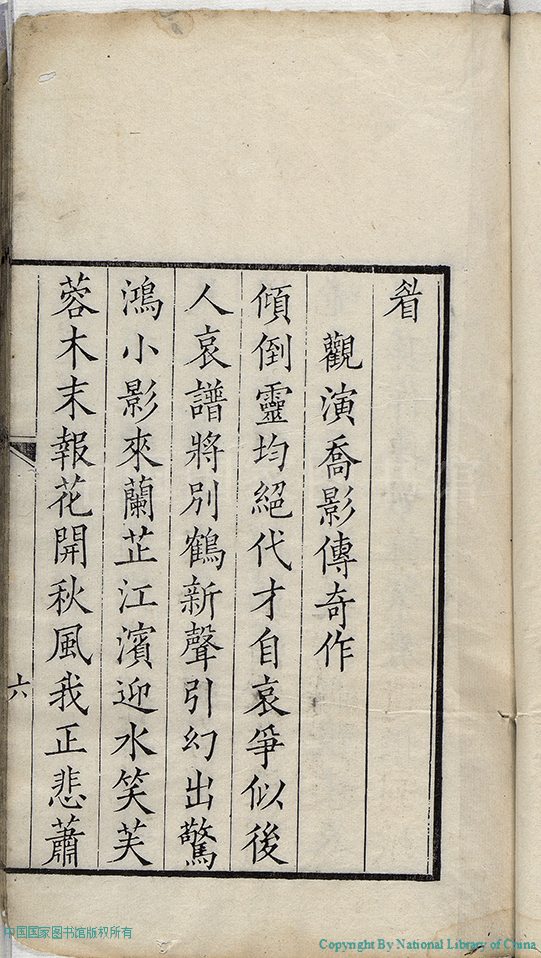 看
觀演喬影傳奇作
傾倒靈均絕代才自哀爭似後
人哀譜將別鶴新聲引幻出驚
鴻小影來蘭芷江濱迎水笑芙
蓉木末報花開秋風我正悲蕭
六
中国国家图书馆版权所有
Copyright By National Library of China